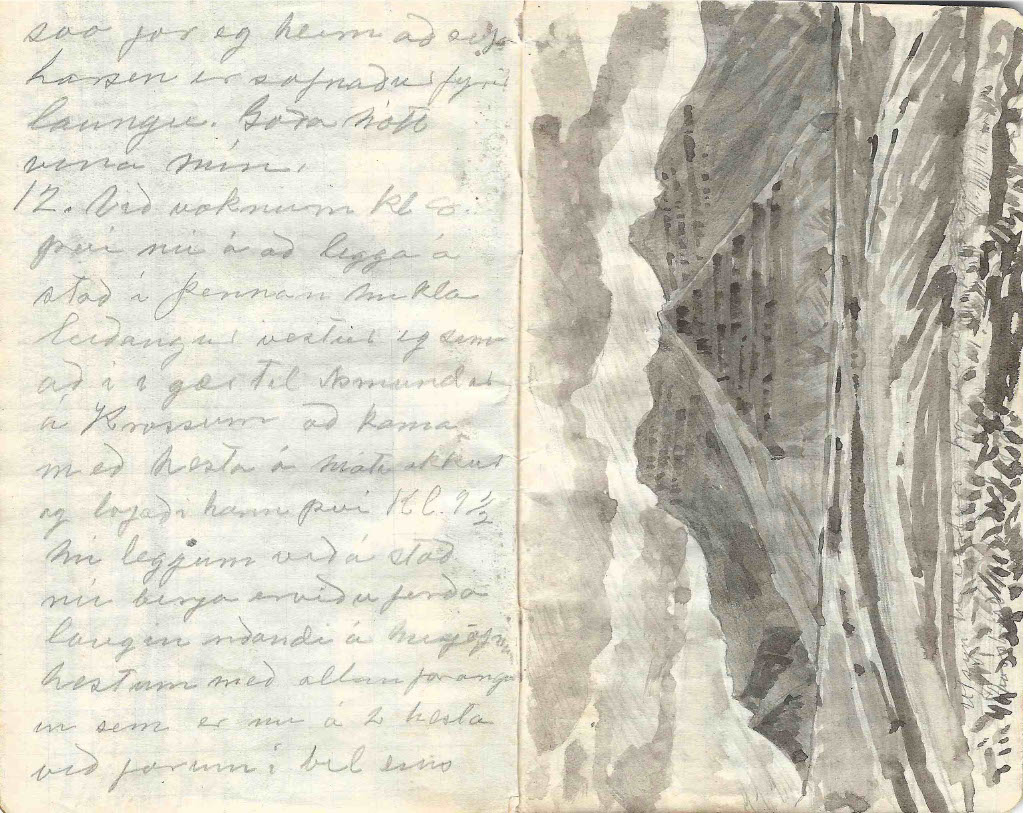 svo for eg heim að
er sofnaður fyrir
laungu. Goða nótt
vina mín.
12. Við voknum kl 8.
því nú á að leggja á
stað í þennan mikla
leiðangur vestur eg sem
að í gær til Asmundar
á Krossum að koma
með hesta á móti okkur
og lofaði hann því Kl. 9 1/2
Nú leggjum við á stað
nú birja erviðu ferða
laugin ríðandi á misjöfnum
hestum með allan farangur
in sem er nú á 2 hesta
við forum í bil eins